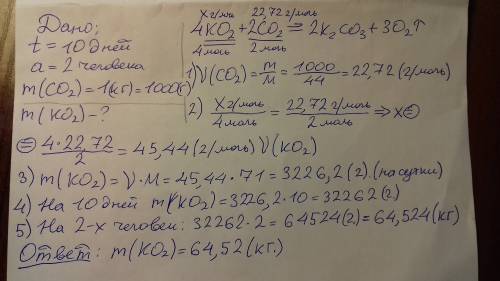 Дано:
t = 10 дней
a = 2 человека
m(CO₂) = 1(кг) = 1000(г)
m(KO₂) - ?
x г/моль 22,72 г/моль
4KO₂ + 2CO₂ = 2K₂CO₃ + 3O₂↑
4 моль 2 моль
1) ν(CO₂) = m/M = 1000/44 = 22,72 (г/моль)
2) x г/моль / 4 моль = 22,72 г/моль / 2 моль ⇒ x =
= 4·22,72 / 2 = 45,44 (г/моль) ν(KO₂)
3) m(KO₂) = ν·M = 45,44·71 = 3226,2 (г) (на сутки)
4) На 10 дней m(KO₂) = 3226,2·10 = 32262 (г)
5) На 2-х человек: 32262·2 = 64524(г) = 64,524(кг)
Ответ: m(KO₂) = 64,52 (кг.)